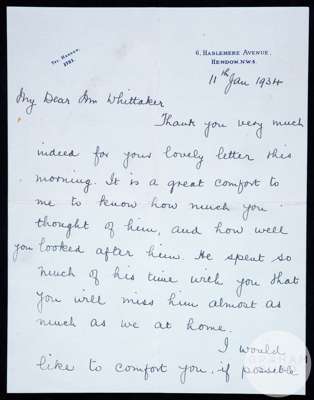 Tel. Hendon,
1193.
6, Haslemere Avenue,
Hendon, N.W.4.
11th Jan 1934
My Dear Mrs Whittaker
Thank you very much
indeed for your lovely letter this
morning. It is a great comfort to
me to know how much you
thought of him, and how well
you looked after him. He spent so
much of his time with you that
you will miss him almost as
much as we at home.
I would
like to comfort you, if possible
GRAHAM